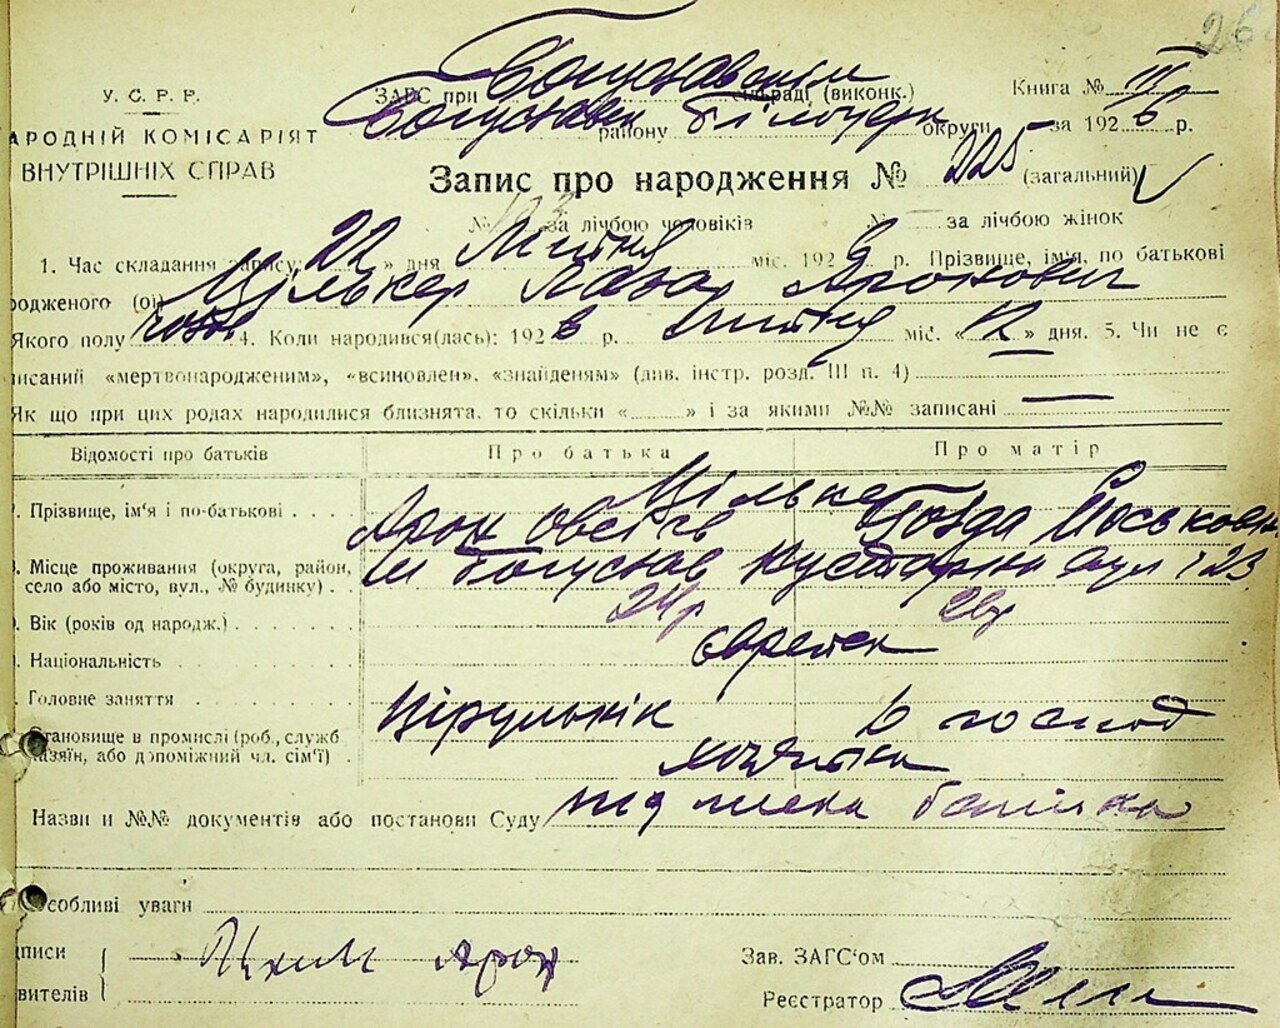 26
У. С. Р. Р.
ЗАГС при Богуславськім сельраді (виконк.) Книга № III
АРОДНІЙ КОМІСАРІЯТ Богуславськ району Білоцерк округи за 1926 р.
ВНУТРІШНІХ СПРАВ
Запис про народження № 225 (загальний)
№ 123 за лічбою чоловіків № — за лічбою жінок
1. Час складання запису: 22 » дня Липня міс. 1926 р. Прізвище, ім'я, по батькові
родженого (ої) Цількер Лазар Аронович
Якого полу чолов 4. Коли народився(лась): 1926 р. липня міс. « 12 » дня. 5. Чи не є
писаний «мертвонародженим», «всиновлен», «знайденям» (див. інстр. розд. III п. 4)
Як що при цих родах народилися близнята, то скільки « » і за якими №№ записані —
Відомості про батьків Про батька Про матір
Прізвище, ім'я і по-батькові Цількер
Арон Овсіїв Йоськовн
Місце проживання (округа, район, село або місто, вул., № будинку) м Богуслав Кустарна вул 23
Вік (років од народж.) 24р
Національність єврейск
Головне заняття Цірульнік в господ
Становище в промислі (роб., служб
хазяїн, або допоміжний чл. сім'ї) хозяїна
Назви и №№ документів або постанови Суду
Особливі уваги
дписи Арон Зав. ЗАГС'ом
явителів Реєстратор